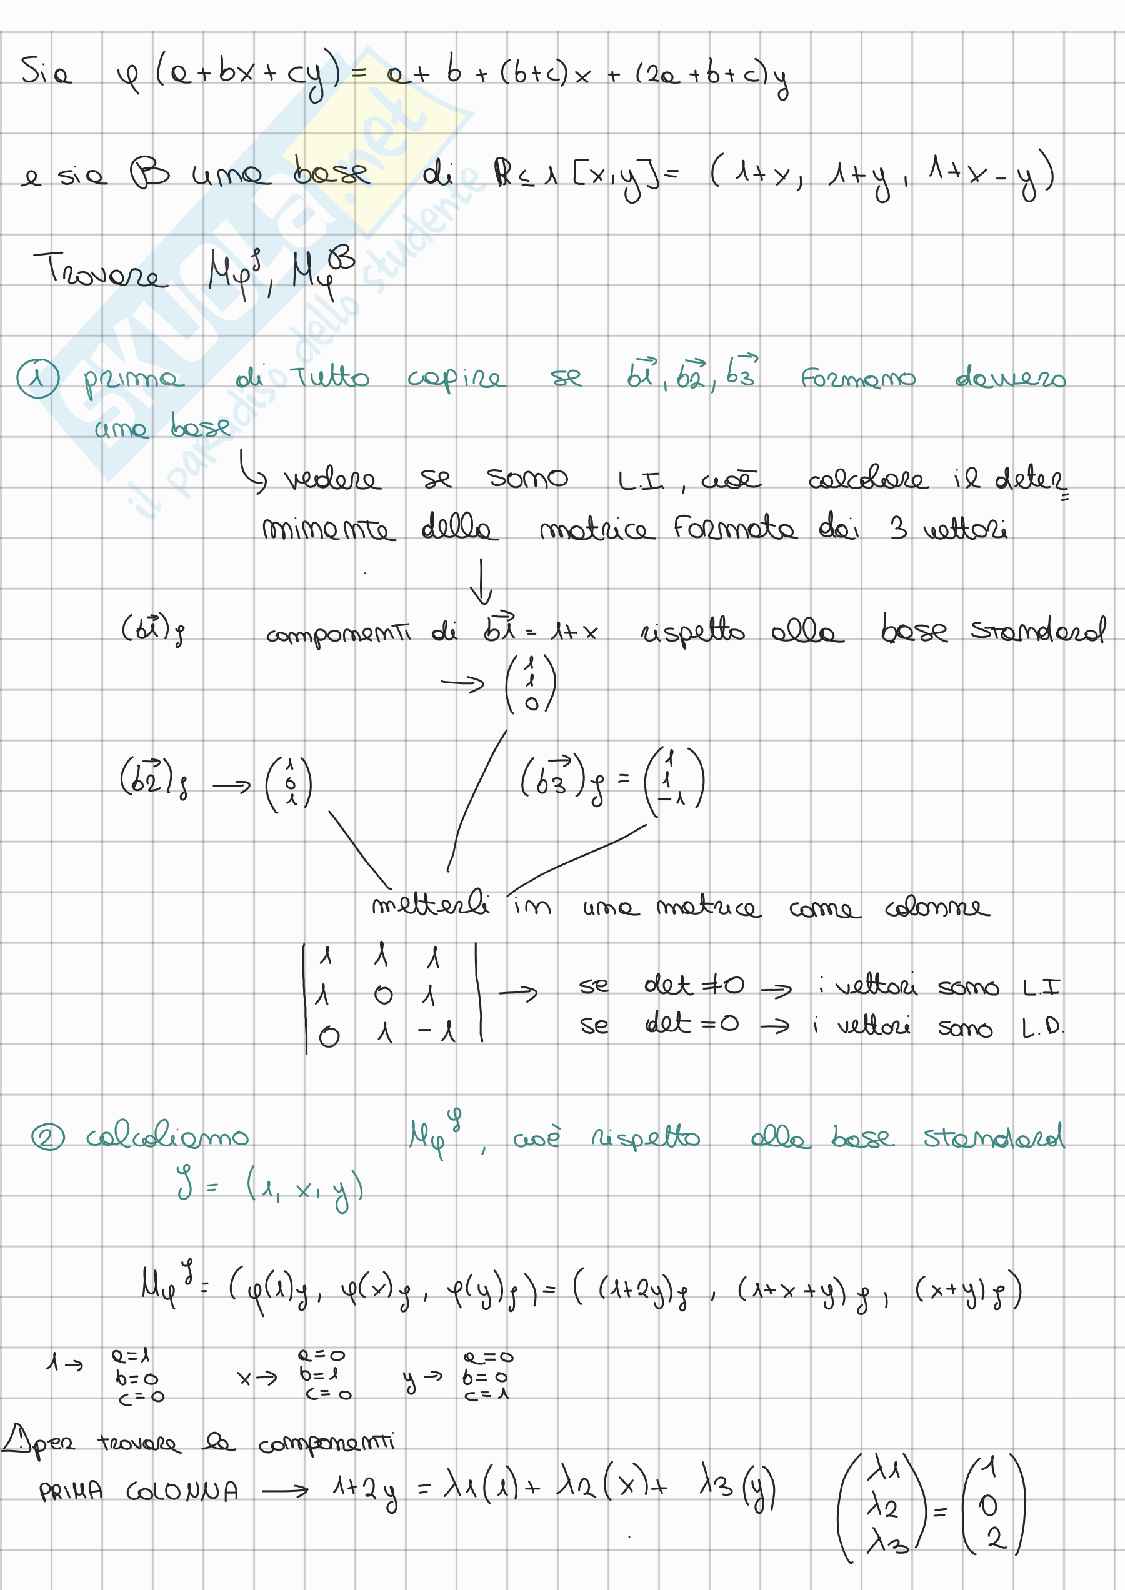 Sia φ(a+bx+cy) = a+b+(b+c)x+(2a+b+c)y
e sia B una base di R≤1[x,y] = (1+x, 1+y, 1+x-y)
Trovare Mφ^S, Mφ^B
① prima di tutto capire se b1, b2, b3 formano davvero
una base
↳ vedere se sono L.I., cioè calcolare il deter=
minante della matrice formata dai 3 vettori
↓
(b1)S componenti di b1 = 1+x rispetto alla base standard
→ (1 1 0)
(b2)S → (1 0 1) (b3)S = (1 1 -1)
metterli in una matrice come colonne
| 1 1 1 |
| 1 0 1 | → se det ≠0 → i vettori sono L.I
| 0 1 -1 | se det =0 → i vettori sono L.D.
② calcoliamo Mφ^S, cioè rispetto alla base standard
S = (1, x, y)
Mφ^S = (φ(1)S, φ(x)S, φ(y)S) = ((1+2y)S, (1+x+y)S, (x+y)S)
1→ a=1 b=0 c=0 x→ a=0 b=1 c=0 y→ a=0 b=0 c=1
△per trovare le componenti
PRIMA COLONNA → 1+2y = λ1(1)+ λ2(x)+ λ3(y) (λ1 λ2 λ3) = (1 0 2)
SKUOLA.net
il paradiso dello studente